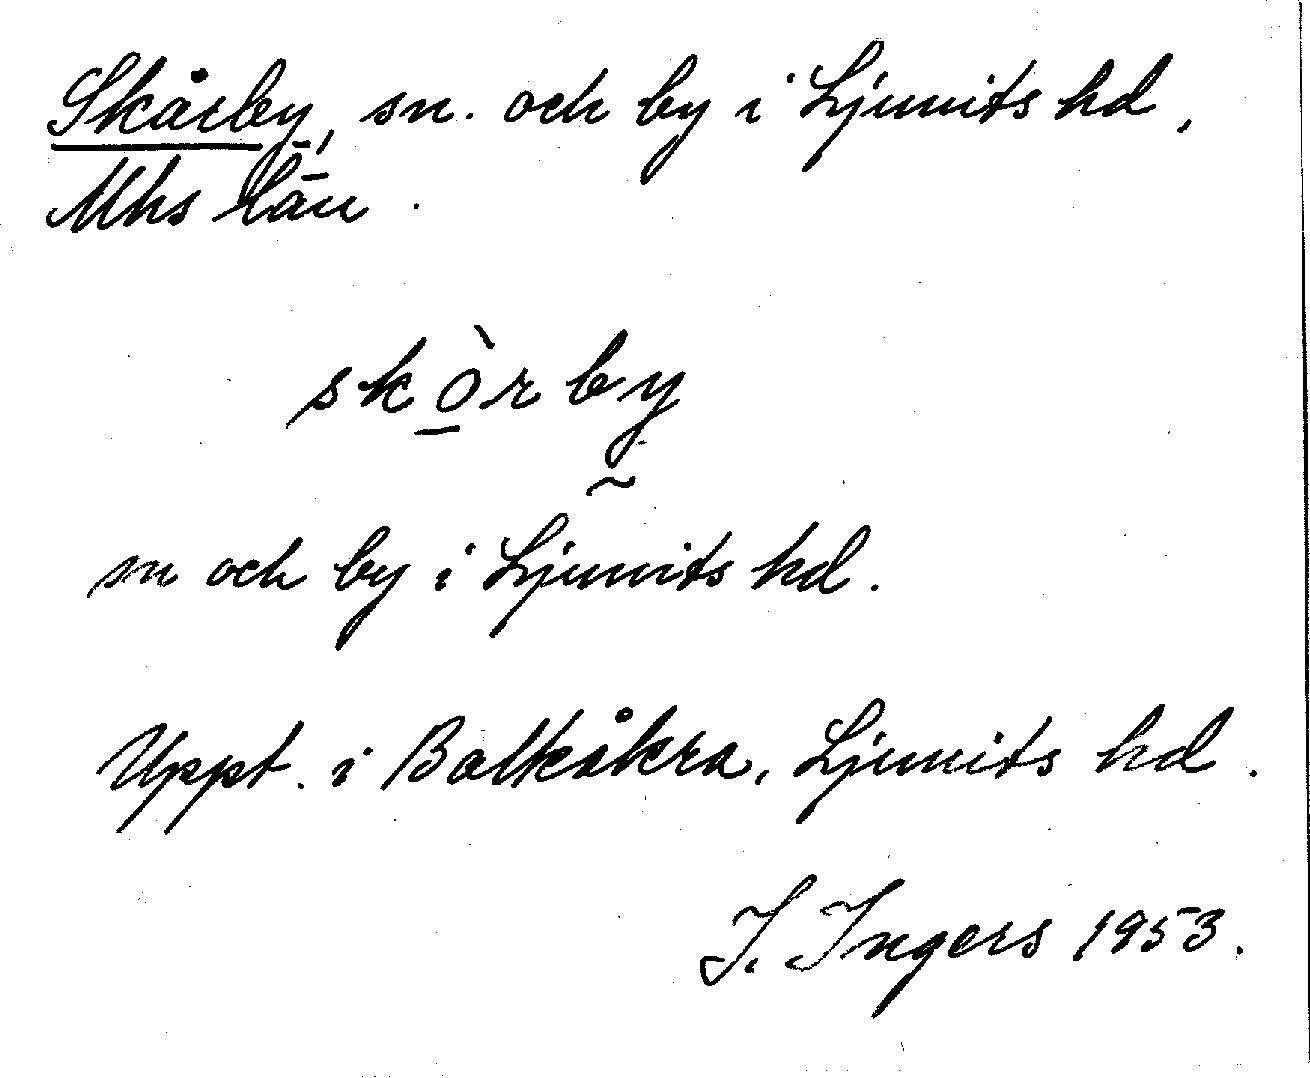 Skårby, sn. och by i Ljunits hd,
Mhs län.
skòrby
sn och by i Ljunits hd.
Uppt. i Balkåkra, Ljunits hd.
I. Ingers 1953.